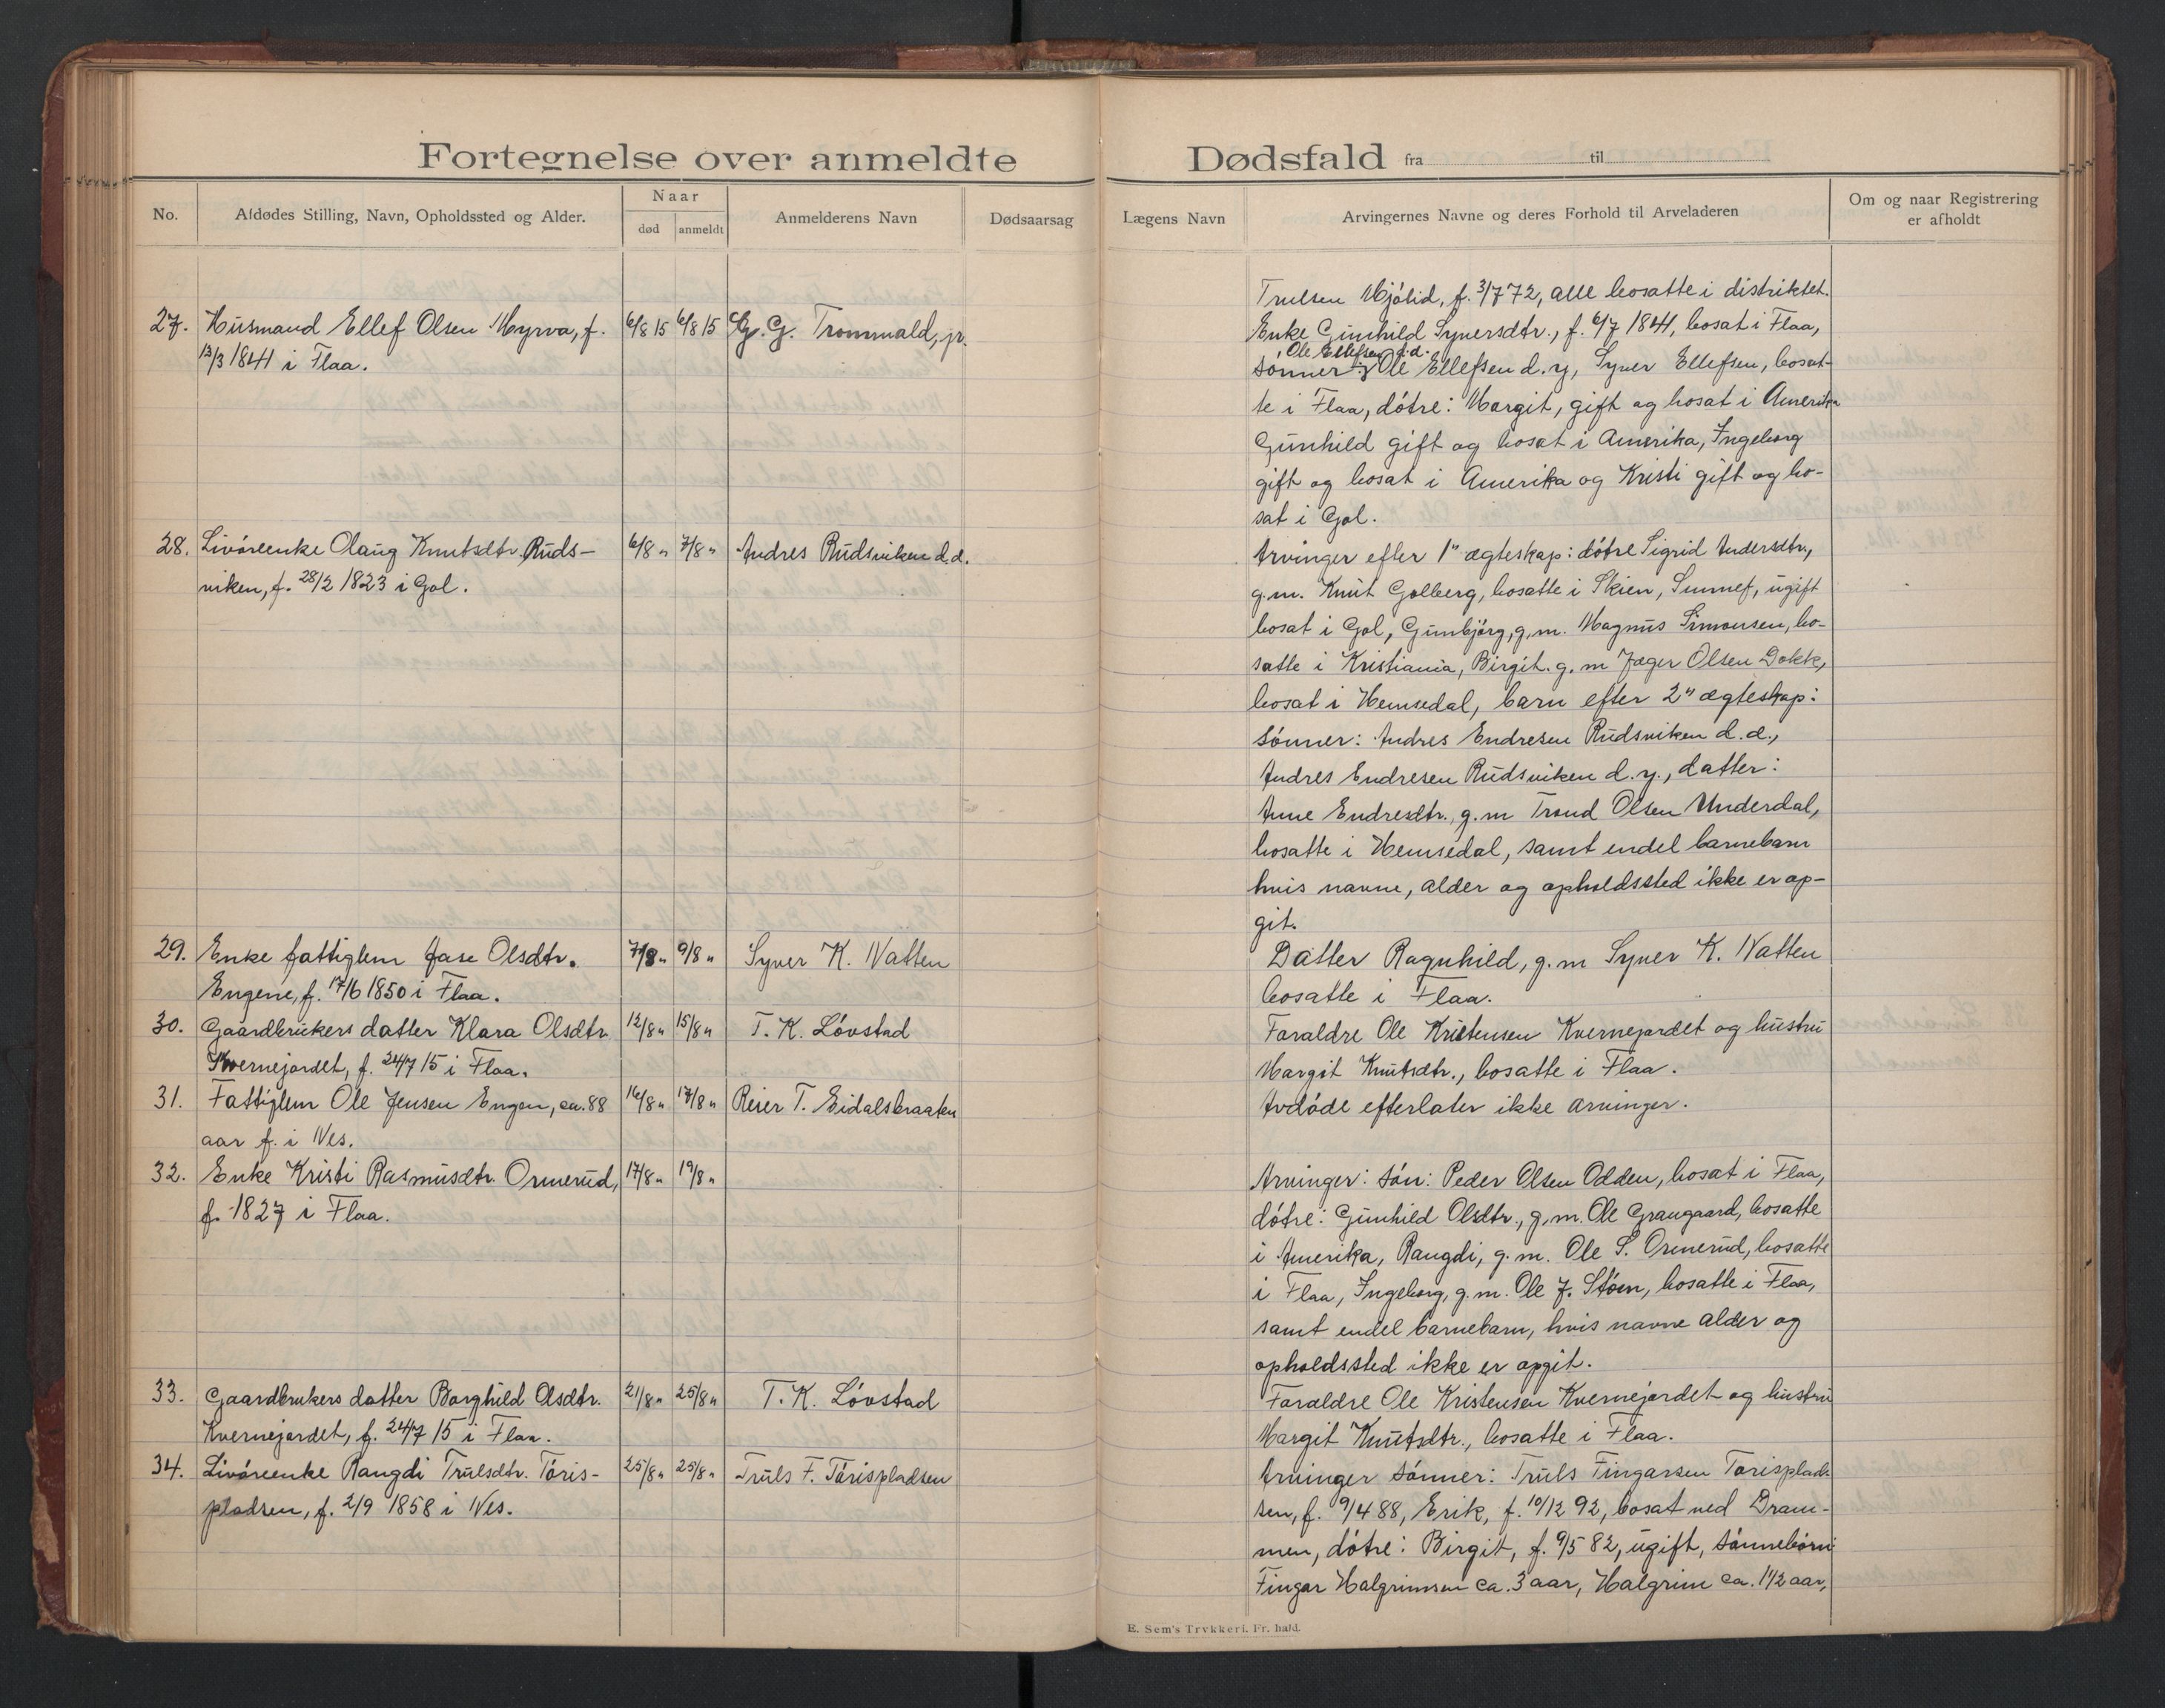 Fortegnelse over anmeldte Dødsfald fra til
No.
Afdødes Stilling, Navn, Opholdssted og Alder.
Naar
død
anmeldt
Anmelderens Navn
Dødsaarsag
Lægens Navn
Arvingernes Navne og deres Forhold til Arveladeren
Om og naar Registrering
er afholdt
Trulsen Mjölid, f. 3/7 72, alle bosatte i distriktet.
27. Husmand Ellef Olsen Myrva, f. 6/8 15 6/8 15 G. G. Trommald, jr.
13/3 1841 i Flaa.
Enke Gunhild Syversdtr., f. 6/7 1841, bosat i Flaa,
Ole Ellefsen d.d.
sønner: Ole Ellefsen d. y, Syver Ellefsen, bosat-
te i Flaa, døtre: Margit, gift og bosat i Amerika
Gunhild gift og bosat i Amerika, Ingeborg
gift og bosat i Amerika og Kristi gift og bo-
sat i Gol.
28. Livøreenke Olaug Knutsdtr. Ruds- 6/8 " 7/8 " Andres Rudsviken d.d.
viken, f. 28/2 1823 i Gol.
Arvinger efter 1" ægteskap: døtre Sigrid Andersdtr.,
g.m. Knut Golberg, bosatte i Skien, Sunnef, ugift
bosat i Gol, Gunbjørg, g.m. Magnus Simonsen, bo-
satte i Kristiania, Birgit. g. m Jæger Olsen Dokk,
bosat i Hemsedal, barn efter 2" ægteskap:
sønner: Andres Endresen Rudsviken d. e.,
Andres Endresen Rudsviken d. y., datter:
Anne Endresdtr., g. m Trond Olsen Underdal,
bosatte i Hemsedal, samt endel barnebarn
hvis navne, alder og opholdssted ikke er op-
git.
29. Enke fattiglem Jase Olsdtr. 7/8 " 9/8 " Syver K. Natten
Engene, f. 17/6 1850 i Flaa.
Datter Ragnhild, g. m Syver K. Natten
bosatte i Flaa.
30. Gaardbrukers datter Klara Olsdtr 12/8 " 15/8 " T. K. Løvstad
Kvernejordet, f. 24/7 15 i Flaa.
Foraldre Ole Kristensen Kvernejordet og hustru
Margit Knutsdtr., bosatte i Flaa.
31. Fattiglem Ole Jensen Engen, ca. 88 16/8 " 17/8 " Reier T. Eidalsbraaten
aar f. i Nes.
Avdøde efterlater ikke arvinger.
32. Enke Kristi Rasmusdtr. Ormerud, 17/8 " 19/8 "
f. 1827 i Flaa.
Arvinger: søn: Peder Olsen Odden, bosat i Flaa,
døtre: Gunhild Olsdtr., g. m. Ole Graugaard, bosatte
i Amerika, Rangdi, g. m. Ole S. Ormerud, bosatte
i Flaa, Ingeborg, g. m. Ole J. Støen, bosatte i Flaa,
samt endel barnebarn, hvis navne alder og
opholdssted ikke er opgit.
33. Gaardbrukers datter Borghild Olsdtr. 21/8 " 25/8 " T. K. Løvstad
Kvernejordet, f. 24/7 15 i Flaa.
Foraldre Ole Kristensen Kvernejordet og hustru
Margit Knutsdtr., bosatte i Flaa.
34. Livøreenke Rangdi Trulsdtr. Tøris- 25/8 " 25/8 " Truls F. Tørispladsen
pladsen, f. 2/9 1858 i Nes.
Arvinger sønner: Truls Fingarsen Torisplad-
sen, f. 9/4 88, Erik, f. 10/12 92, bosat ved Dram-
men, døtre: Birgit, f. 9/5 82, ugift, sønnebørn:
Fingar Halgrimsen ca. 3 aar, Halgrim ca. 1 1/2 aar,
E. Sem's Trykkeri. Fr. hald.